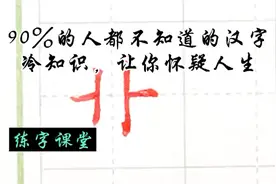 90%的人都不知道的汉字
冷知识，让你怀疑人生
练字课堂